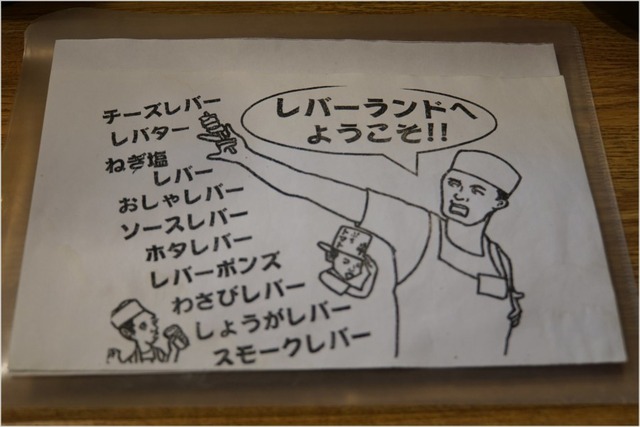 レバーランドへ
ようこそ!!
チーズレバー
レバター
ねぎ塩
レバー
おしゃレバー
ソースレバー
ホタレバー
レバーポンズ
わさびレバー
しょうがレバー
スモークレバー